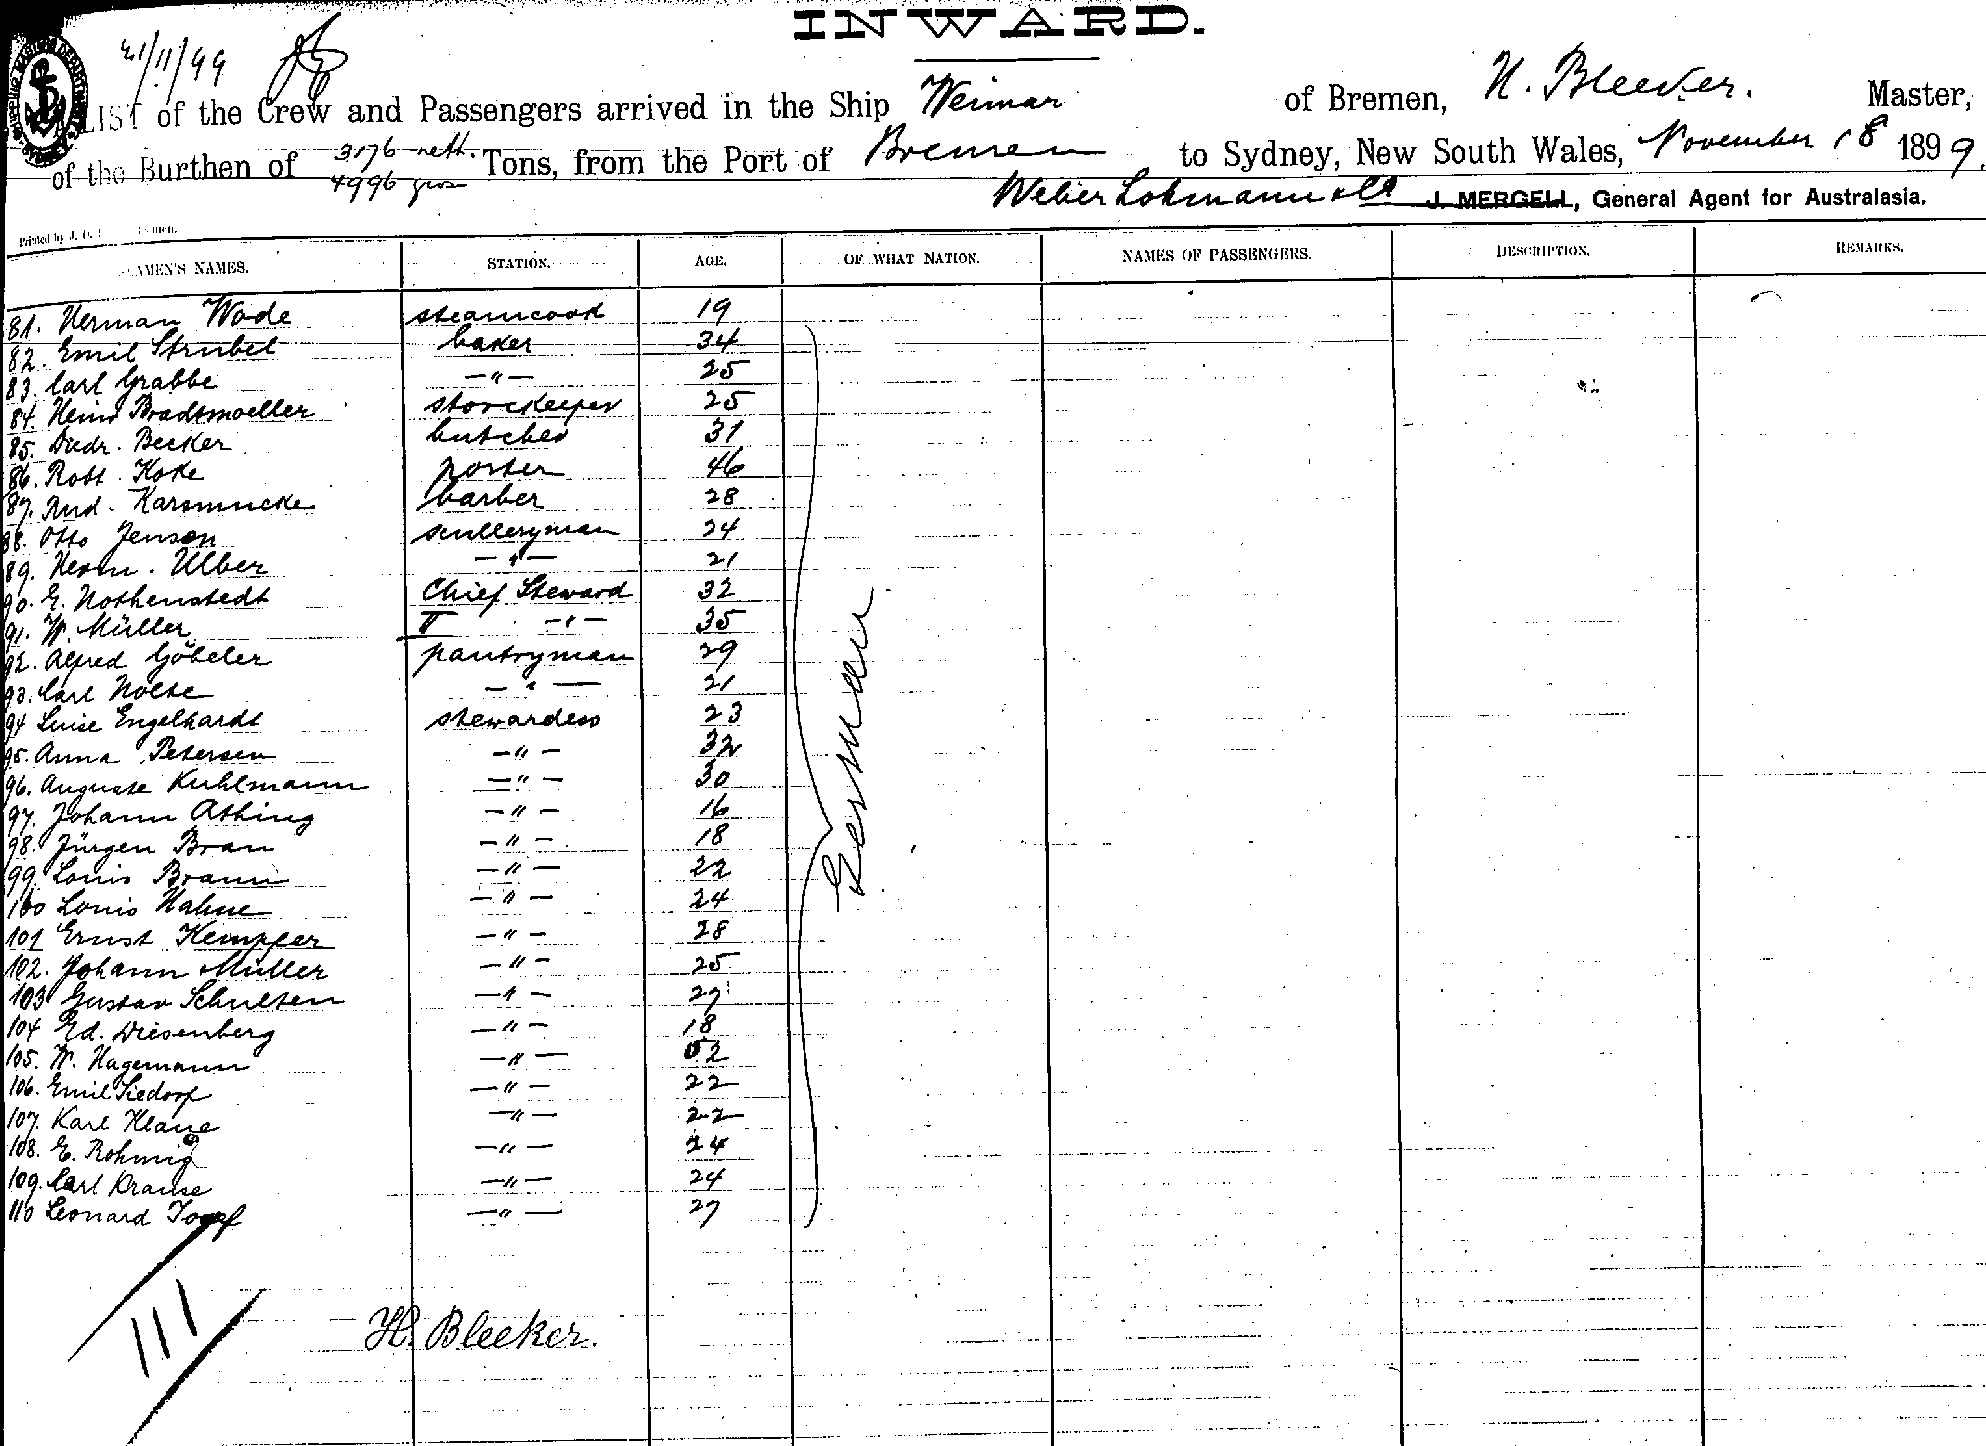 INWARD.
21/11/99
LIST of the Crew and Passengers arrived in the Ship Weimar of Bremen, H. Bleeker. Master,
of the Burthen of 3176 nett. 4996 gross Tons, from the Port of Bremen to Sydney, New South Wales, November 18 1899.
Weber Lohmann & Co J. MERGELL, General Agent for Australasia.
Printed by J.
SEAMEN'S NAMES. STATION. AGE. OF WHAT NATION. NAMES OF PASSENGERS. DESCRIPTION. REMARKS.
81. Herman Wode steamcook 19
82. Emil Strubel baker 34
83. Carl Grabbe —"— 25
84. Heinr Bradtmoeller storekeeper 25
85. Diedr. Becker butcher 31
86. Robt. Koke porter 46
87. Rud. Karsmucke barber 28
88. Otto Jensen sculleryman 24
89. Herm. Ulber —"— 21
90. E. Nothenstedt Chief Steward 32
91. W. Müller II —"— 35
92. Alfred Göbeler pantryman 29
93. Carl Nolte —"— 21
94 Luise Engelhardt stewardess 23
95. Anna Petersen —"— 32
96. Auguste Kuhlmann —"— 30
97. Johann Athing —"— 16
98. Jürgen Bran —"— 18
99. Louis Braun —"— 22
100 Louis Hahne —"— 24
101 Ernst Kempfer —"— 28
102. Johann Müller —"— 25
103 Gustav Schulten —"— 27
104 Ed. Diesenberg —"— 18
105. W. Hagemann —"— 52
106. Emil Siedorf —"— 22
107. Karl Klaue —"— 22
108. E. Rohmig —"— 24
109. Carl Krause —"— 24
110 Leonard Topf —"— 27
German
111
H. Bleeker.